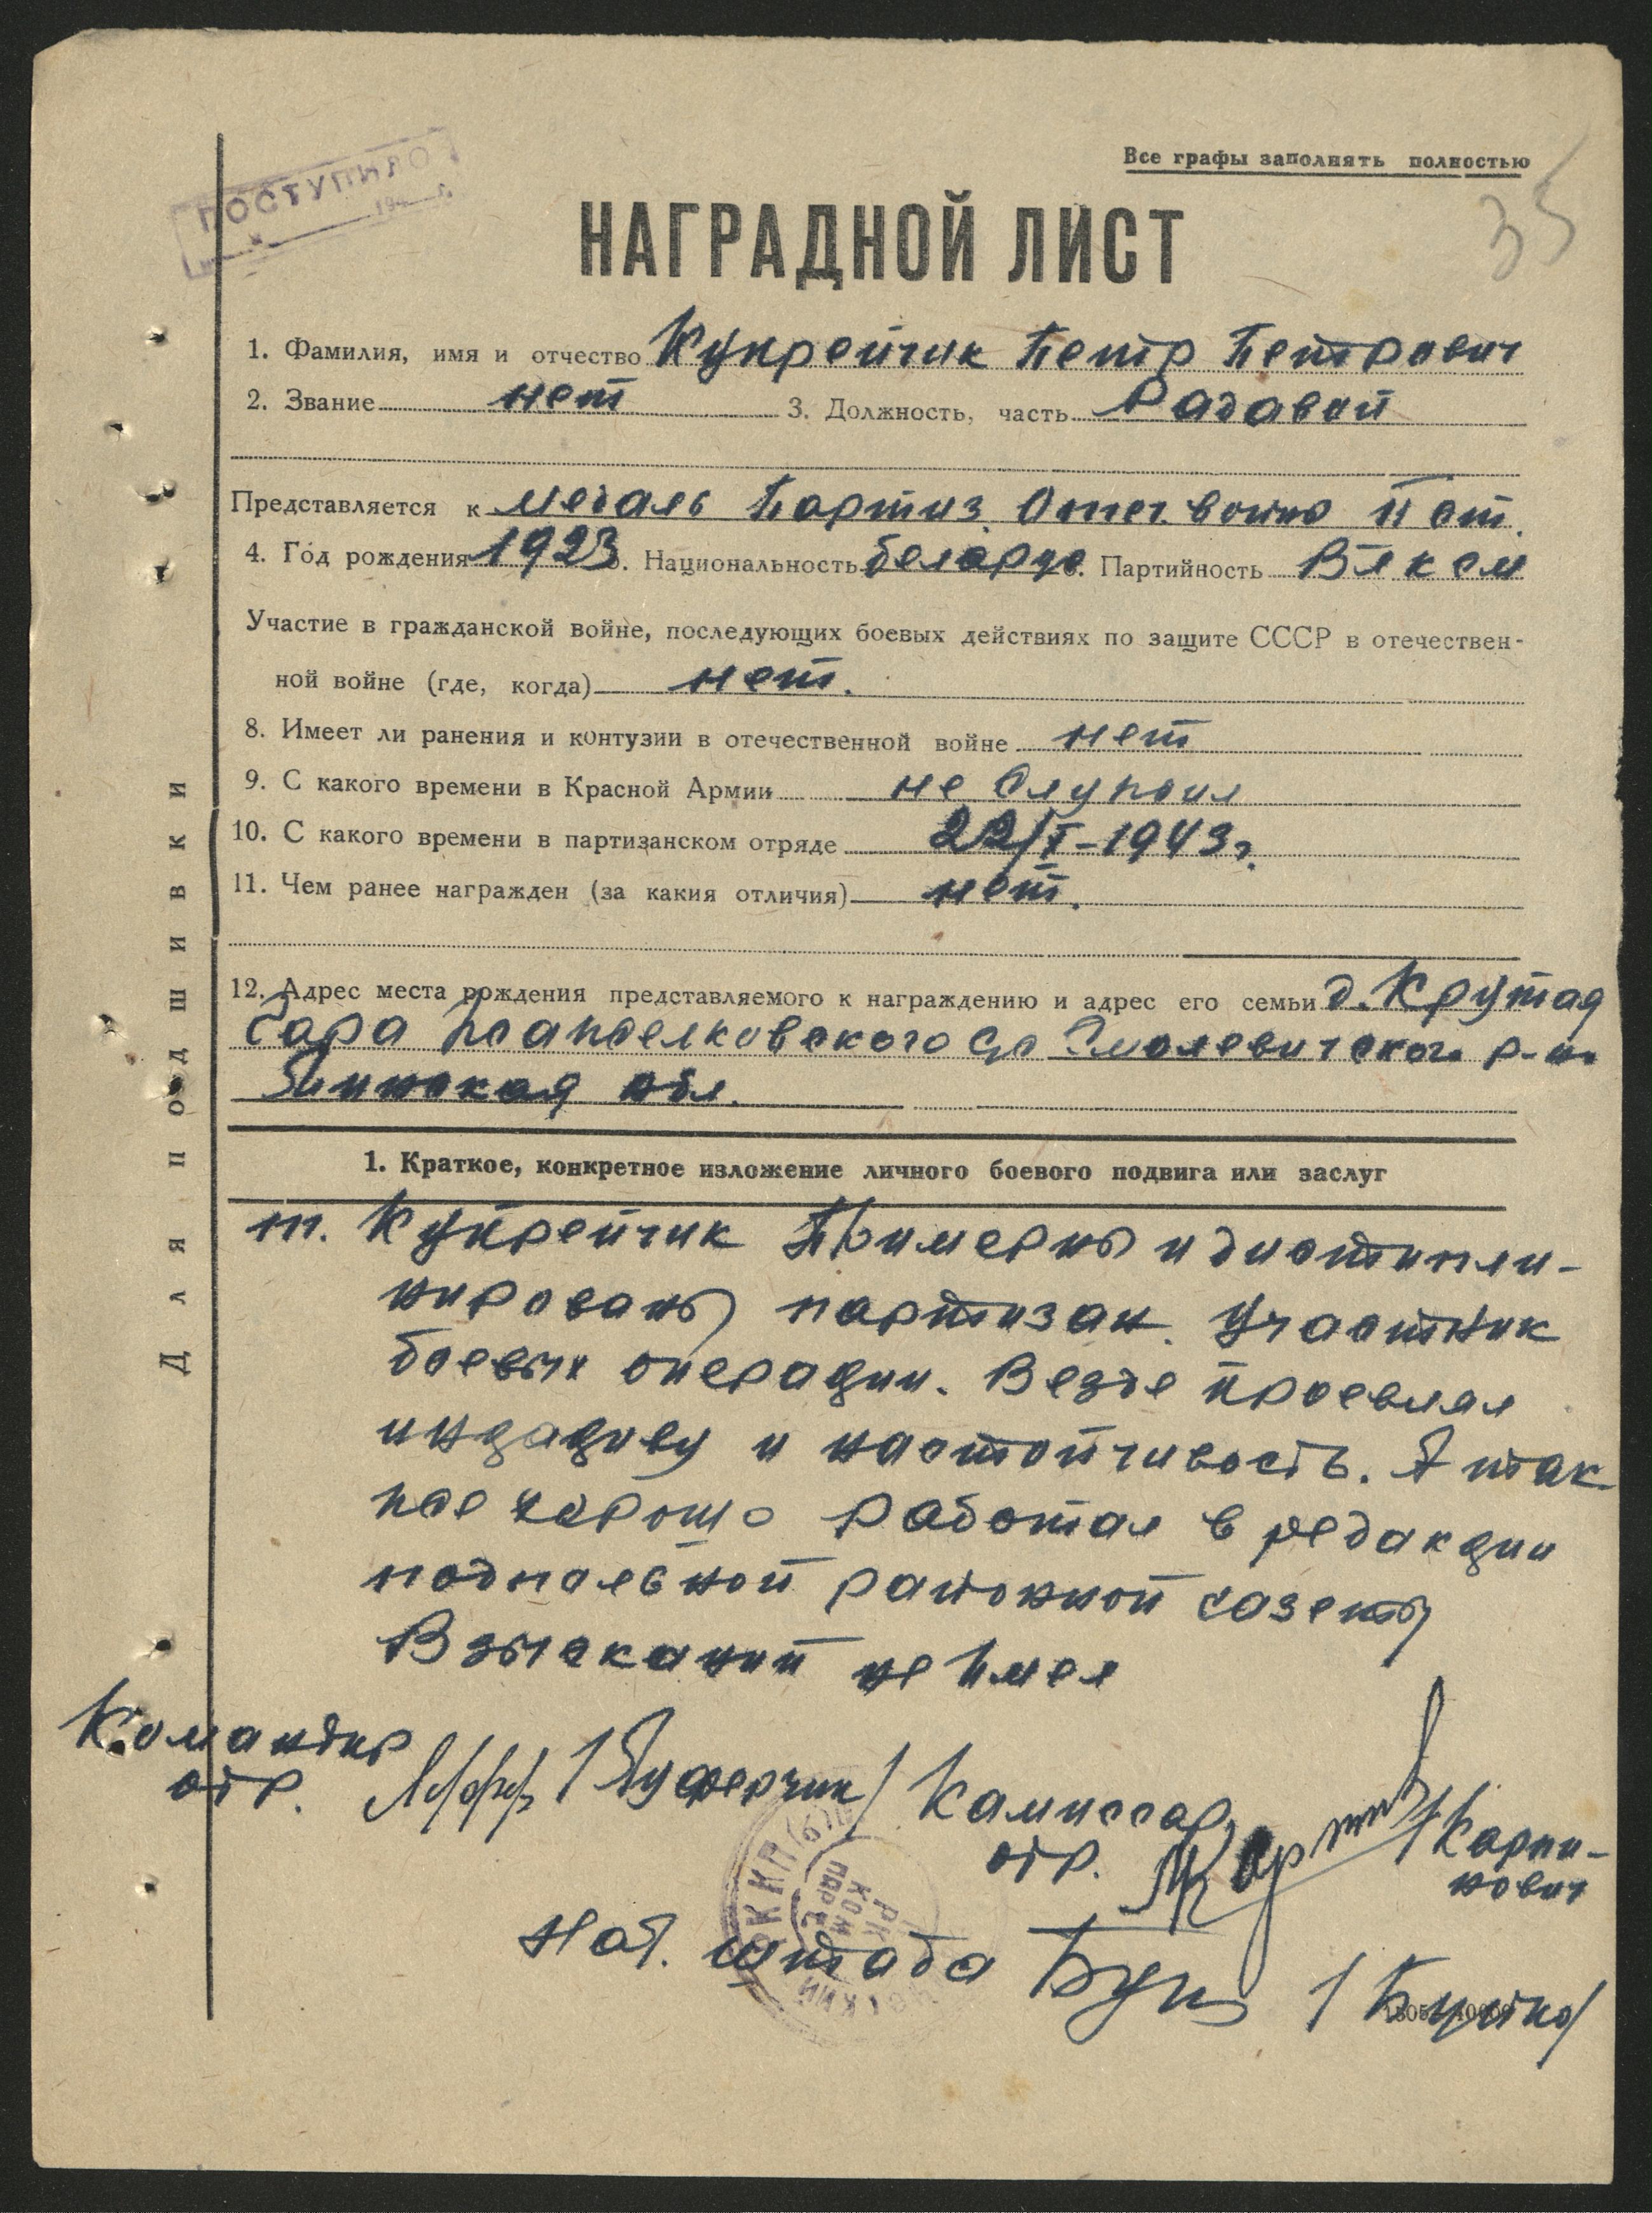 ПОСТУПИЛО
194 г.
Все графы заполнять полностью
35
НАГРАДНОЙ ЛИСТ
1. Фамилия, имя и отчество Купрейчик Петр Петрович
2. Звание нет 3. Должность, часть Радавой
Представляется к медаль Партиз. Отеч. войны II ст.
4. Год рождения 1923 5. Национальность беларус 6. Партийность Влксм
Участие в гражданской войне, последующих боевых действиях по защите СССР в отечествен-
ной войне (где, когда) нет.
8. Имеет ли ранения и контузии в отечественной войне нет
9. С какого времени в Красной Армии не служил
10. С какого времени в партизанском отряде 22/I-1943 г.
11. Чем ранее награжден (за какия отличия) нет.
12. Адрес места рождения представляемого к награждению и адрес его семьи д. Крутая
Гара с/с Смолевичского р-на
Минская обл.
1. Краткое, конкретное изложение личного боевого подвига или заслуг
т. Купрейчик Примерны и дистипли-
нированы партизан. Участник
боевых операции. Везде проевлял
и настойчивость. А так
же хорошо работал в редакции
подпольной районной газеты
Взысканий не имел
Командир
отр. Камиссар
отр. /Карпи-
нович
Нач. штаба
Для подшивки